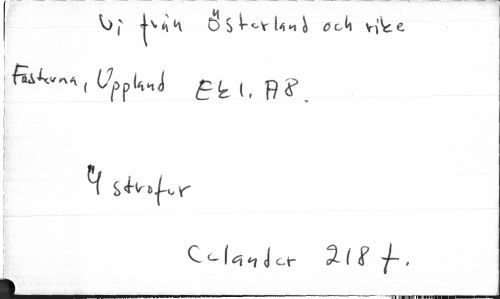 Vi från Österland och rike
Fasterna, Uppland Ek 1. A8.
4 strofer
Celander 218 f.